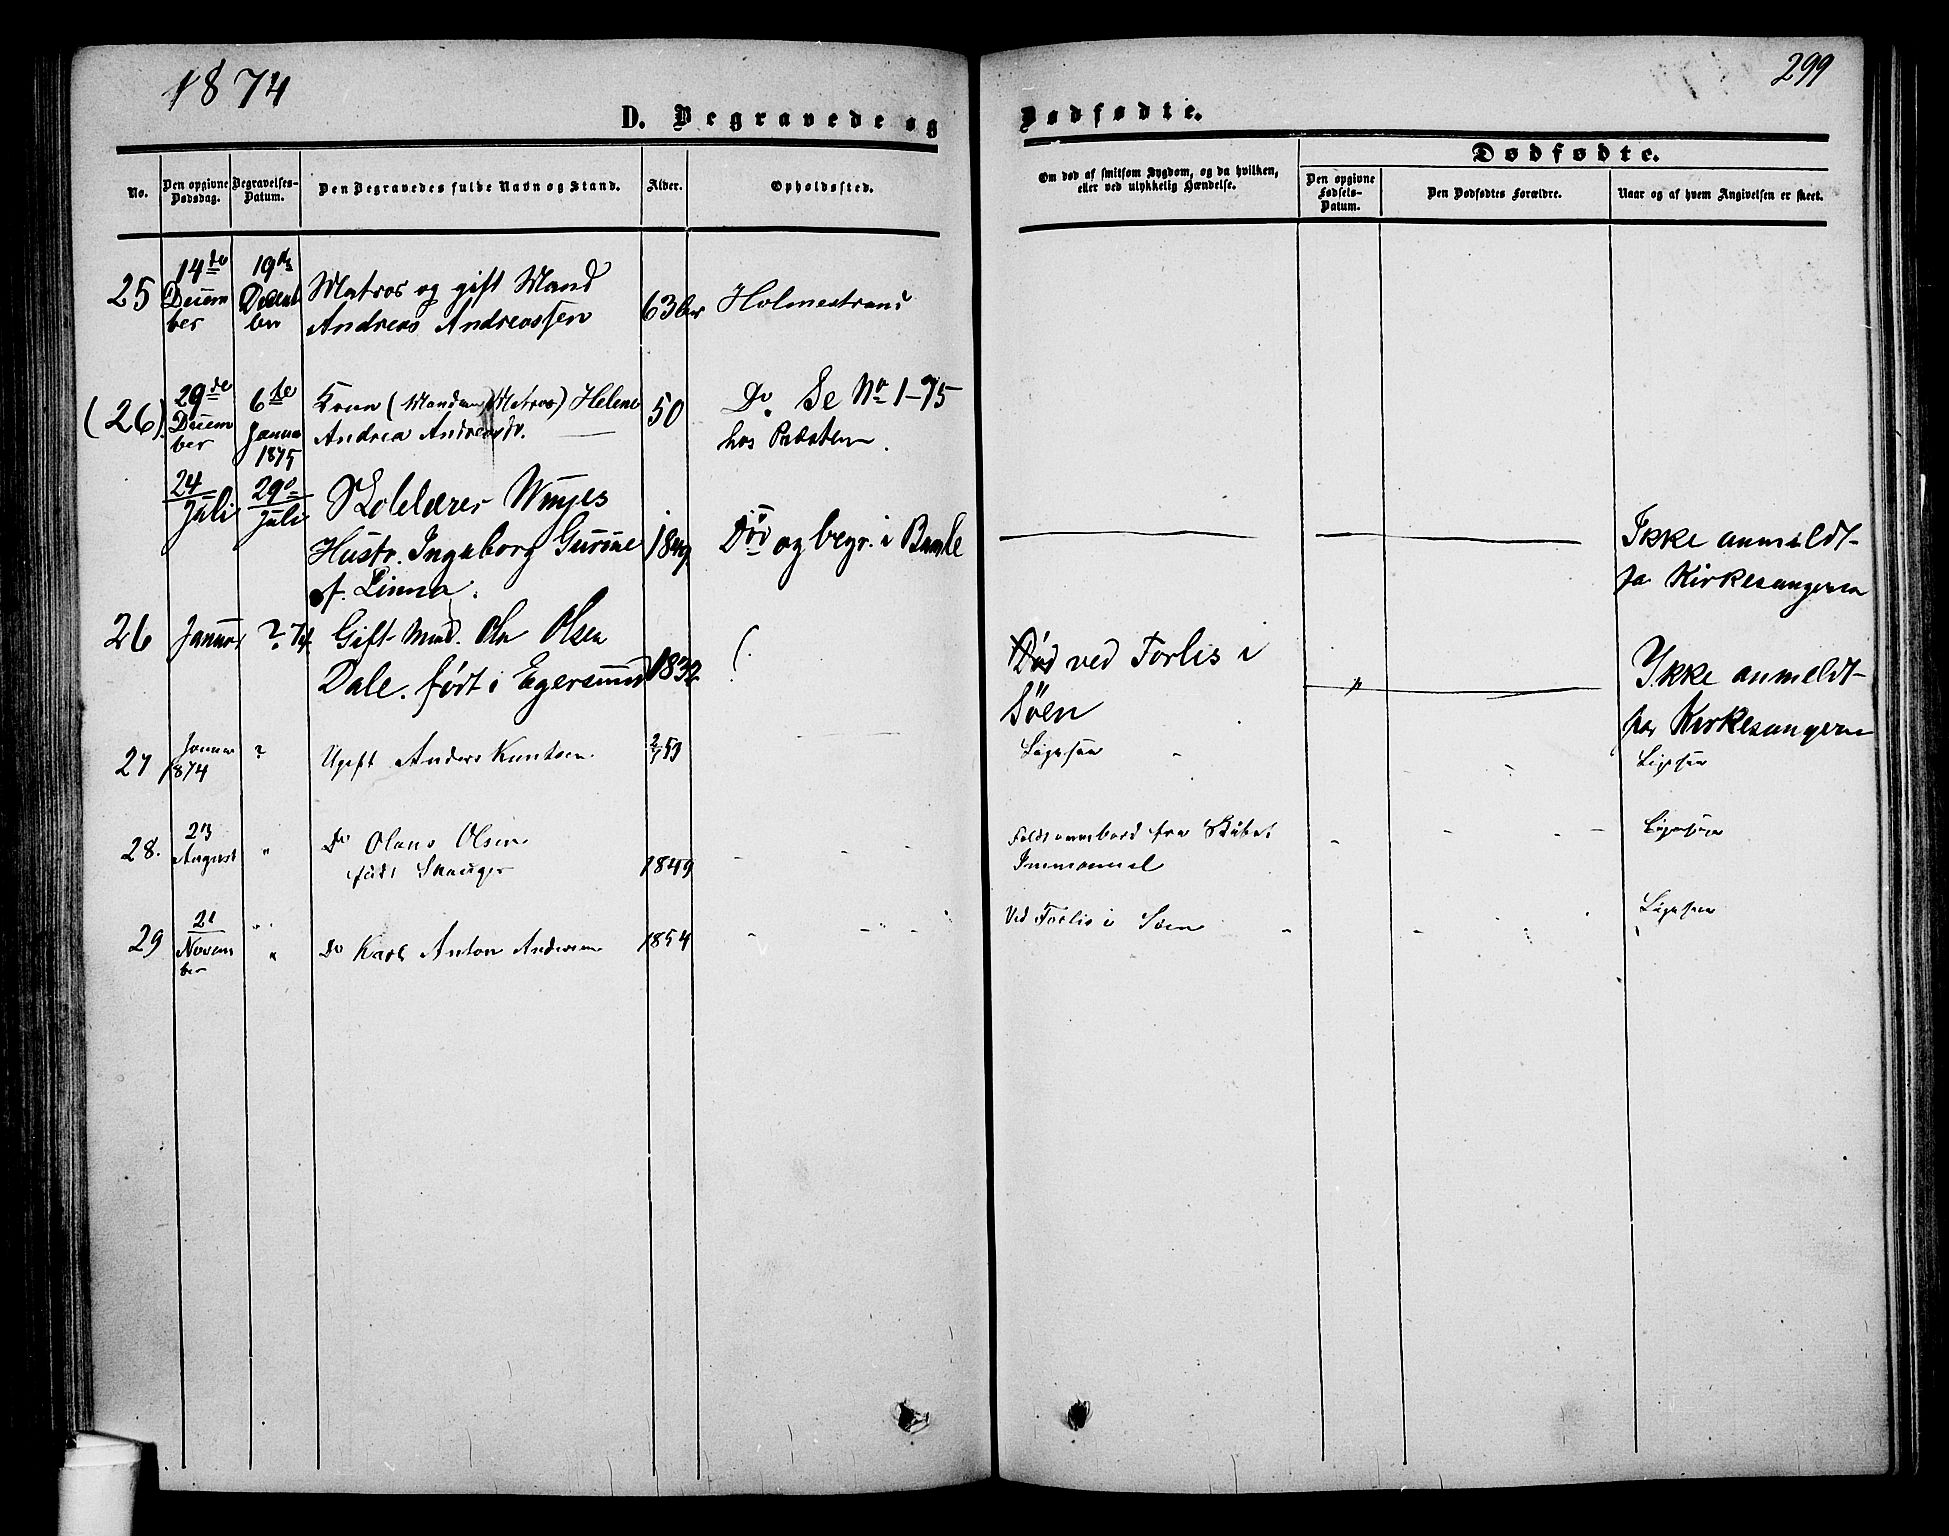 1874
299
D. Begravede og Dødfødte.
Dødfødte.
No.
Den opgivne Dødsdag.
Begravelses-Datum.
Den Begravedes fulde Navn og Stand.
Alder.
Opholdssted.
Om død af smitsom Sygdom, og da hvilken,
eller ved ulykkelig Hændelse.
Den opgivne Fødsels-Datum.
Den Dødfødtes Forældre.
Naar og af hvem Angivelsen er skeet.
25 14de Decem ber 19de Decem ber Matros og gift Mand
Andreas Andreassen 63 Holmestrand
(26). 29de Decem ber 6te Januar 1875 Kone (Manden Matros) Helene
Andrea Andreasdr. 50 Do Se No 1-75
hos Præsten.
24 Juli 29 Juli Skolelærer Winjes
Hustr. Ingeborg Gurine 1849 Død og begr. i Bamle Ikke anmeldt
f. Linna. pa Kirkesangeren
26 Januar ? 74 Gift Mand. Ole Olsen
Dale. født i Egersund 1832 Død ved Forlis i
Söen " Ikke anmeldt
for Kirkesangeren
27 Januar 1874 ? Ugift Anders Knutsen 2/1 53 Ligesaa - Ligesaa
28. 23 August " Do Olaus Olsen
født Skauger 1849 Faldt overbord fra Skibet
Immanuel Ligesaa
29 21 Novem ber " Do Karl Anton Andersen 1854 Ved Forlis i Söen Ligesaa